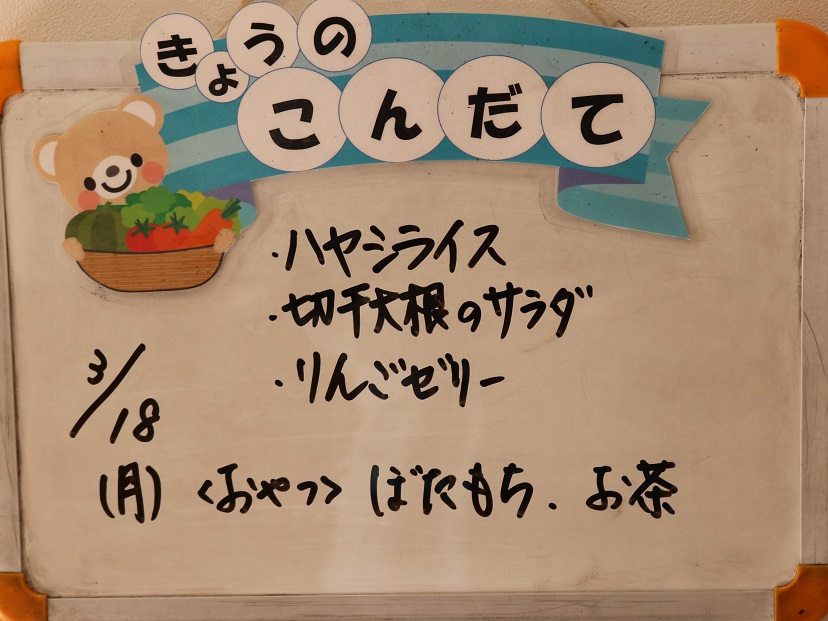 きょうの
こんだて
・ハヤシライス
・切干大根のサラダ
・りんごゼリー
3/18
(月) <おやつ> ぼたもち、お茶